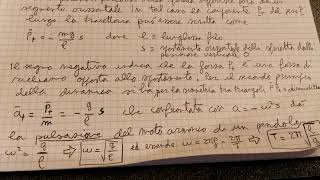 segmento orizzontale. In tal caso la componente P_t del peso
lungo la traiettoria può essere scritta come
P̄_t = - mg/ℓ s dove ℓ = lunghezza filo
s = spostamento orizzontale della sferetta dalla
posizione verticale O
Il segno negativo indica che la forza P_t è una forza di
richiamo opposta allo spostamento, per il secondo principio
della dinamica si ha
ā_t = P̄_t/m = - g/ℓ s che confrontata con a = -ω²s dà
la pulsazione del moto armonico di un pendolo
ω² = g/ℓ ⇒ ω = √(g/ℓ) ed essendo ω = 2πf = 2π/T ⇒ T = 2π √(ℓ/g)